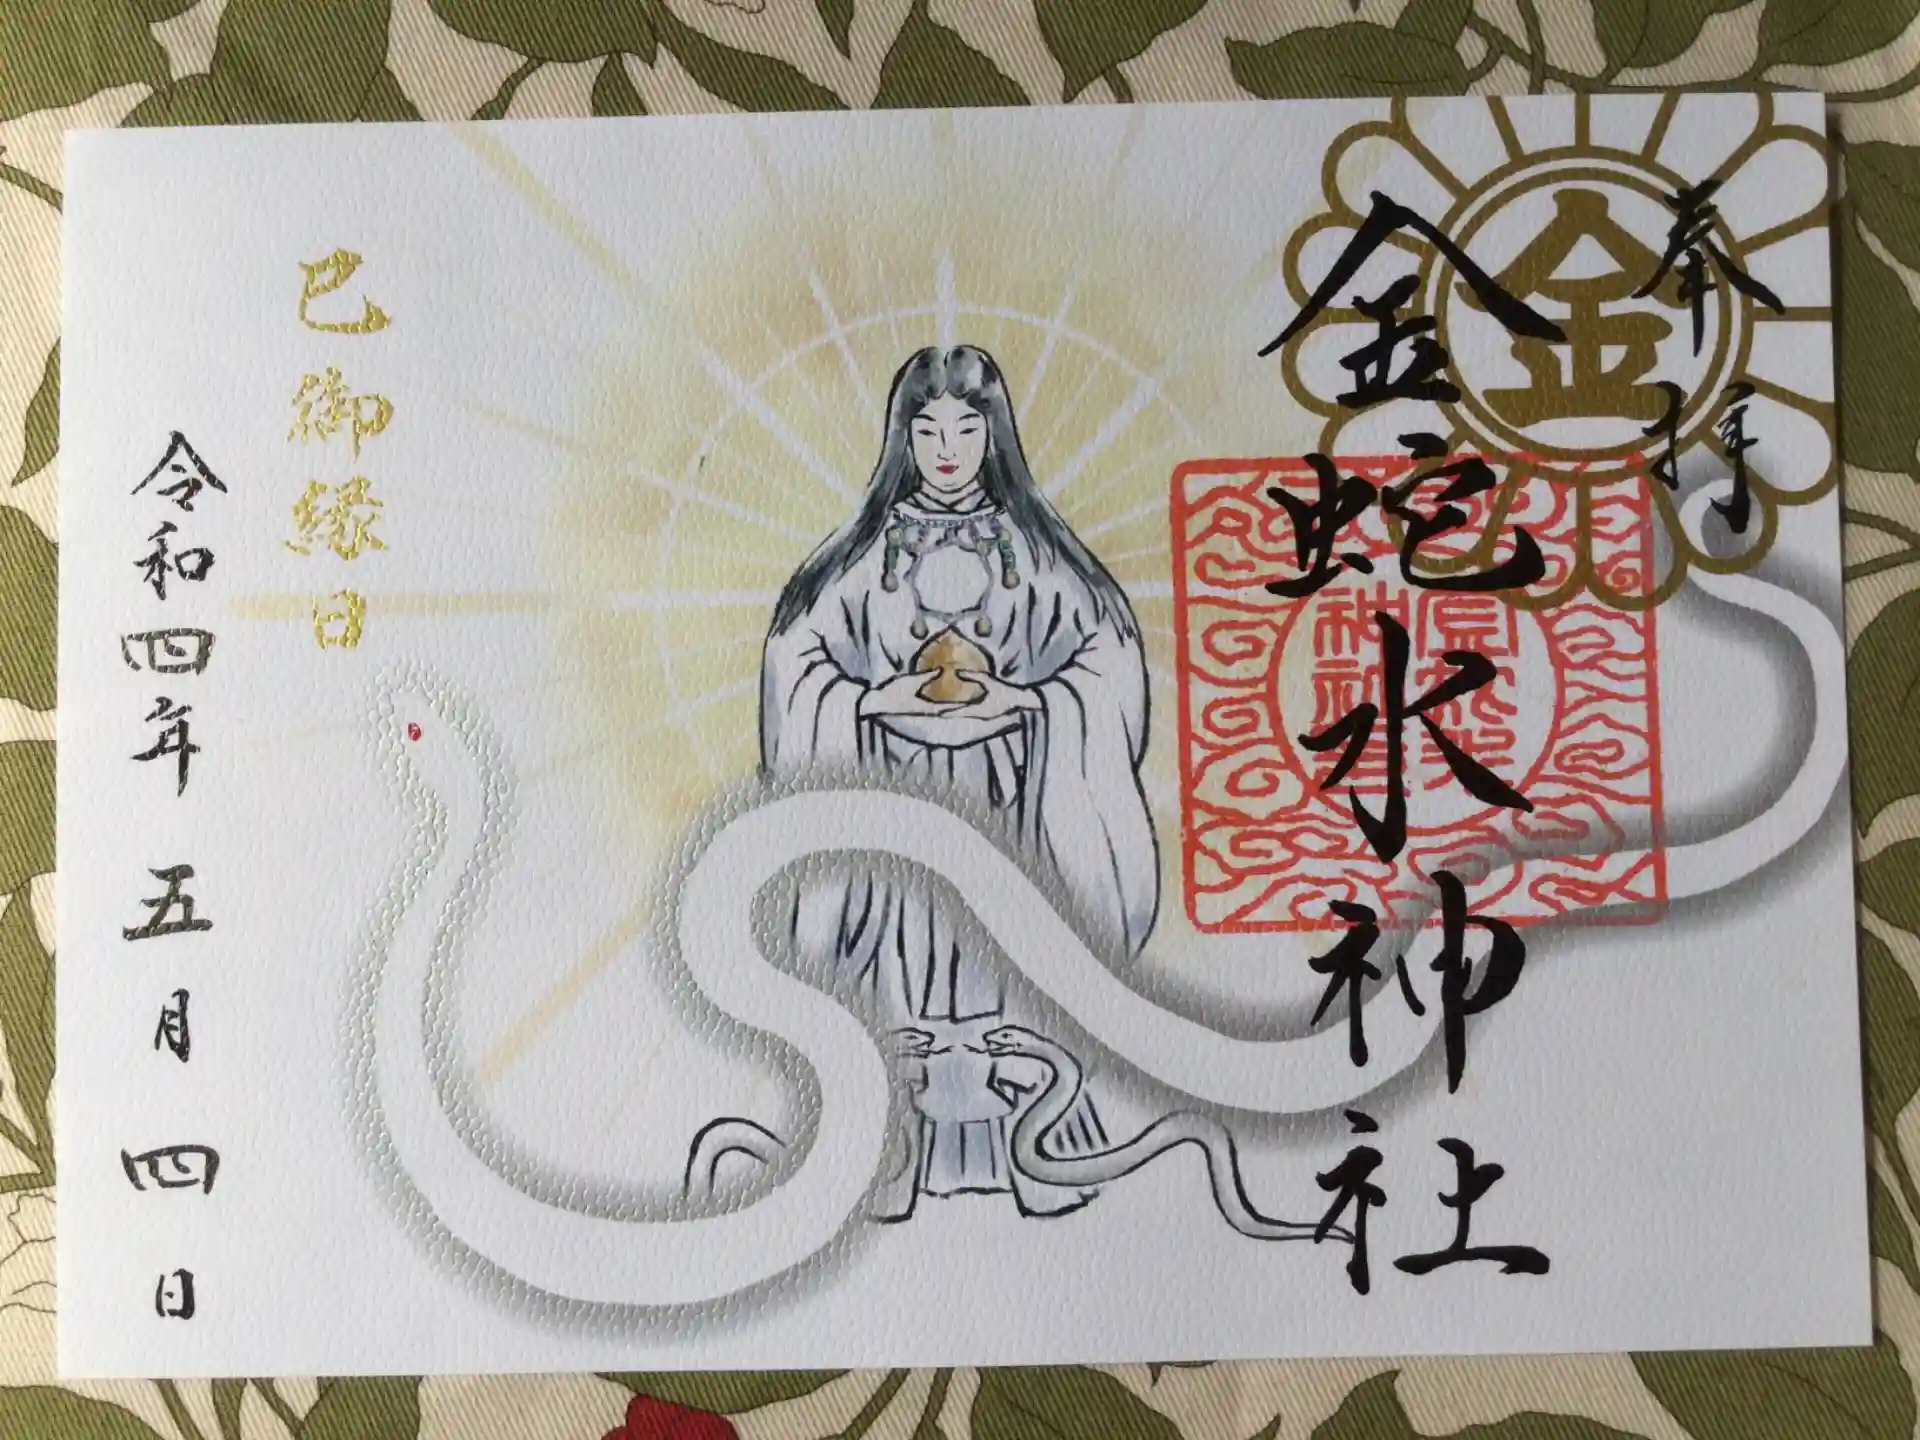 奉拝
金
金蛇水神社
巳御縁日
令和四年 五月 四日